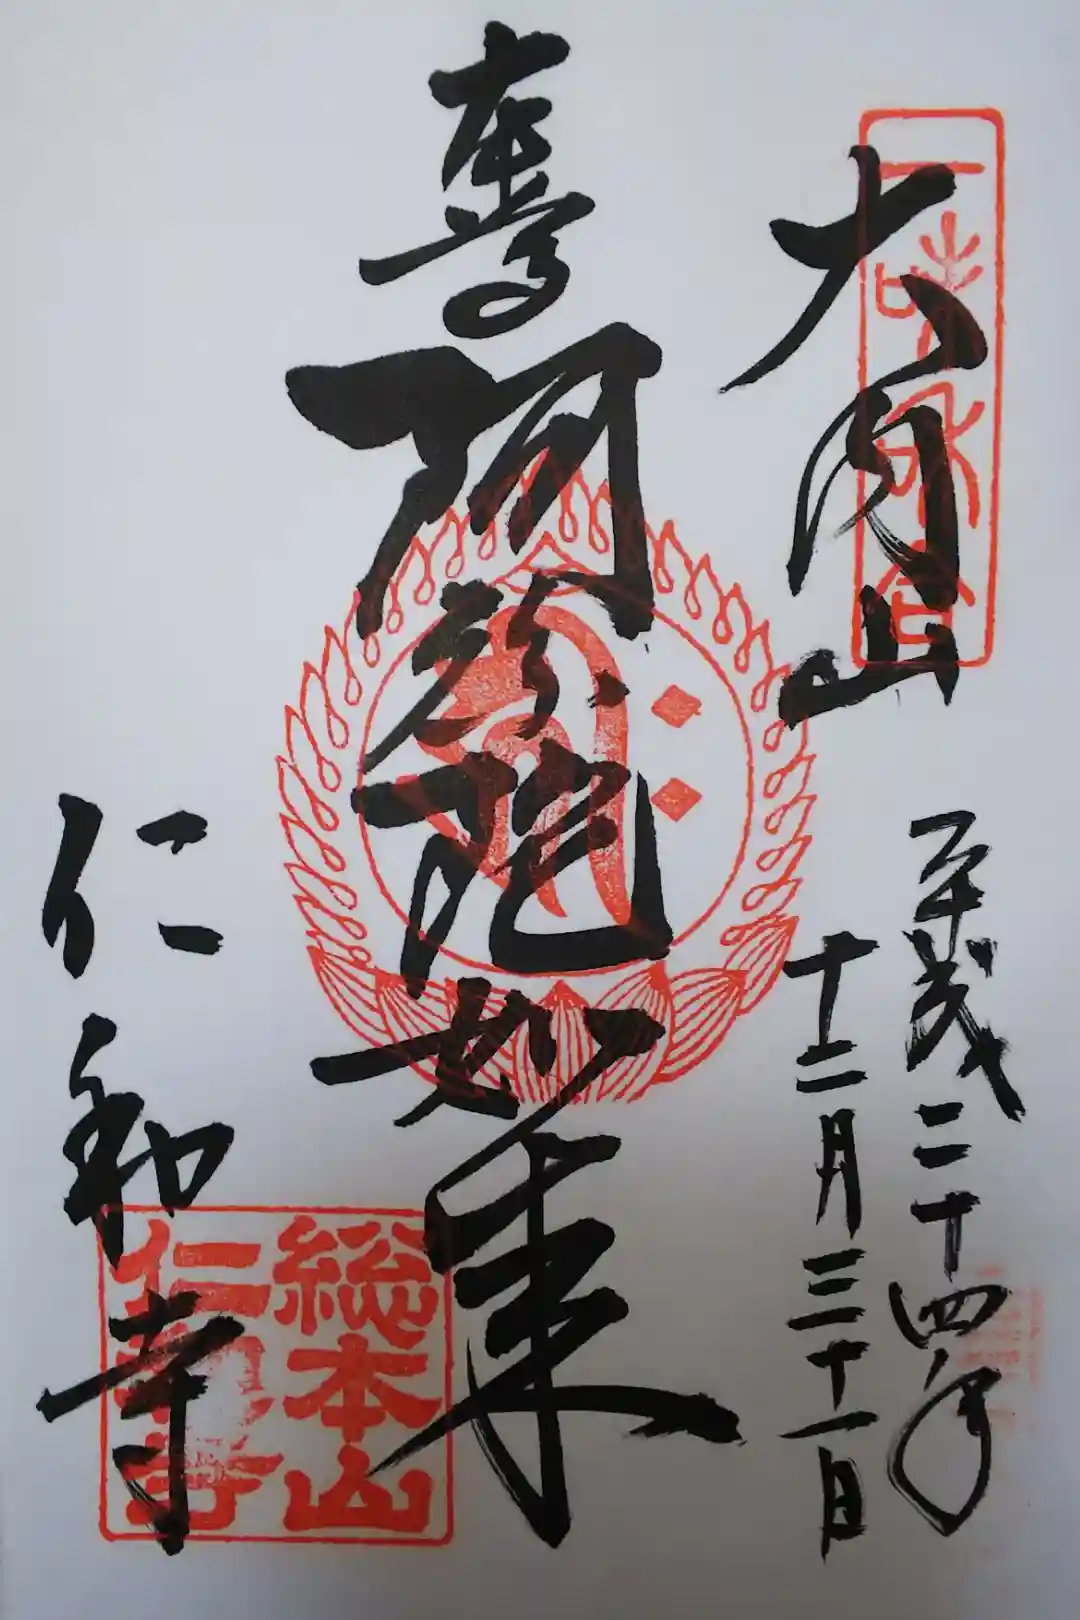 大内山
平成二十四年
十二月三十一日
奉
阿弥陀如来
仁和寺
総本山
仁和寺